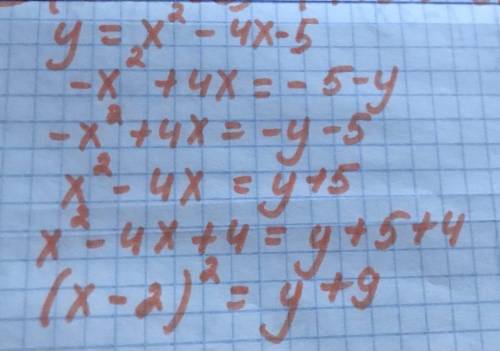 y = x² - 4x - 5
-x² + 4x = - 5 - y
-x² + 4x = -y - 5
x² - 4x = y + 5
x² - 4x + 4 = y + 5 + 4
(x - 2)² = y + 9